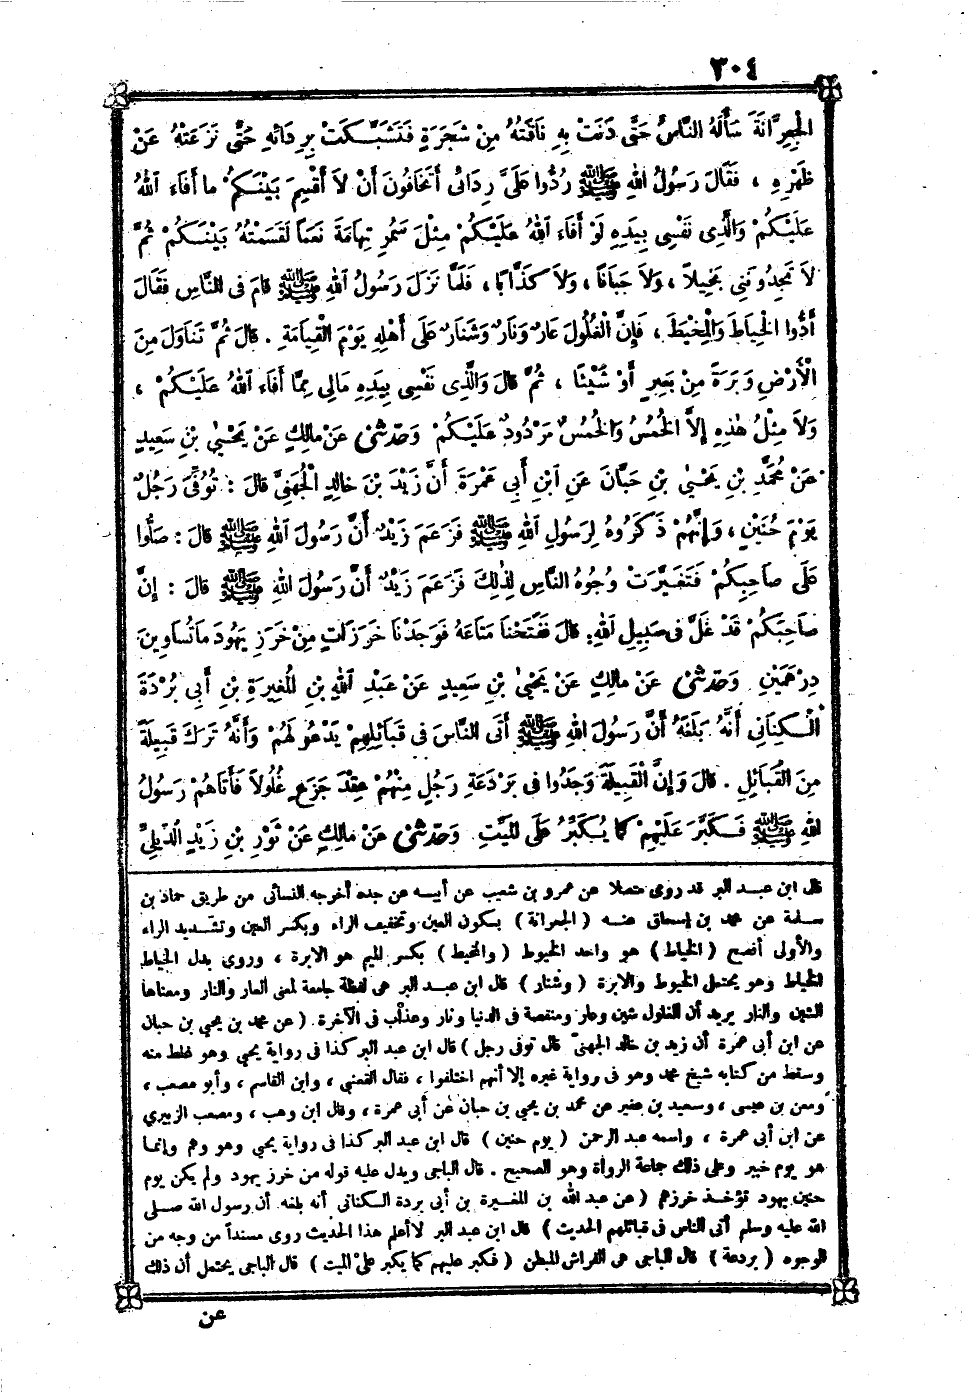 ٣٠٤
الْجِعِرَّانَةَ سَأَلَهُ النَّاسُ حَتَّى دَنَتْ بِهِ نَاقَتُهُ مِنْ شَجَرَةٍ فَتَشَبَّكَتْ بِرِدَائِهِ حَتَّى نَزَعَتْهُ عَنْ
ظَهْرِهِ ، فَقَالَ رَسُولُ اللهِ ﷺ رُدُّوا عَلَىَّ رِدَائى أَتَخَافُونَ أَنْ لاَ أَقْسِمَ بَيْنَكُمْ ما أَفَاءَ اللهُ
عَلَيْكُمْ وَالَّذِى نَفْسِى بِيَدِهِ لَوْ أَفَاءَ اللهُ عَلَيْكُمْ مِثْلَ سَمُرِ تِهَامَةَ نَعَمًا لَقَسَمْتُهُ بَيْنَكُمْ ثُمَّ
لاَ تَجِدُونَنِى بَخِيلاً ، وَلاَ جَبَانًا ، وَلاَ كَذَّابًا ، فَلَمَّا نَزَلَ رَسُولُ اللهِ ﷺ قَامَ فى النَّاسِ فَقَالَ
أَدُّوا الْخِيَاطَ وَالْمِخْيَطَ ، فَإِنَّ الْغُلُولَ عَارٌ وَنَارٌ وَشَنَارٌ عَلَى أَهْلِهِ يَوْمَ الْقِيَامَةِ . قَالَ ثُمَّ تَنَاوَلَ مِنَ
الْأَرْضِ وَبَرَةً مِنْ بَعِيرٍ أَوْ شَيْئًا ، ثُمَّ قَالَ وَالَّذِى نَفْسِى بِيَدِهِ مَالى مِمَّا أَفَاءَ اللهُ عَلَيْكُمْ ،
وَلاَ مِثْلُ هٰذِهِ إِلاَّ الْخُمُسُ وَالْخُمُسُ مَرْدُودٌ عَلَيْكُمْ وَحَدثنى عَنْ مَالِكٍ عَنْ يَحْيىٰ بْنِ سَعِيدٍ
عَنْ مُحَمَّدِ بْنِ يَحْيىٰ بْنِ حَبَّانَ عَنِ ابْنِ أَبِى عَمْرَةَ أَنَّ زَيْدَ بْنَ خَالِدٍ الْجُهَنِىَّ قَالَ : تُوُفِّىَ رَجُلٌ
يَوْمَ حُنَيْنٍ ، وَإِنَّهُمْ ذَكَرُوهُ لِرَسُولِ اللهِ ﷺ فَزَعَمَ زَيْدٌ أَنَّ رَسُولَ اللهِ ﷺ قَالَ : صَلُّوا
عَلَى صَاحِبِكُمْ فَتَغَيَّرَتْ وُجُوهُ النَّاسِ لِذٰلِكَ فَزَعَمَ زَيْدٌ أَنَّ رَسُولَ اللهِ ﷺ قَالَ : إِنَّ
صَاحِبَكُمْ قَدْ غَلَّ فى سَبِيلِ اللهِ. قَالَ فَفَتَحْنَا مَتَاعَهُ فَوَجَدْنَا خَرَزَاتٍ مِنْ خَرَزِ يَهُودَ مَا تُسَاوِينَ
دِرْهَمَيْنِ وَحَدثنى عَنْ مالِكٍ عَنْ يَحْيىٰ بْنِ سَعِيدٍ عَنْ عَبْدِ اللهِ بْنِ الْمُغِيرَةِ بْنِ أَبِى بُرْدَةَ
الْكِنَانِى أَنَّهُ بَلَغَهُ أَنَّ رَسُولَ اللهِ ﷺ أَتَى النَّاسَ فى قَبَائِلِهِمْ يَدْعُو لَهُمْ وَأَنَّهُ تَرَكَ قَبِيلَةً
مِنَ الْقَبَائِلِ . قَالَ وَإِنَّ الْقَبِيلَةَ وَجَدُوا فى بَرْدَعَةِ رَجُلٍ مِنْهُمْ عِقْدَ جَزَعٍ غُلُولاً فَأَتَاهُمْ رَسُولُ
اللهِ ﷺ فَكَبَّرَ عَلَيْهِمْ كمَا يُكَبِّرُ عَلَى الْمَيِّتِ وَحَدثنى عَنْ مَالِكٍ عَنْ ثَوْرِ بْنِ زَيْدٍ الدِّيلِىِّ
قال ابن عبد البر قد روى متصلا عن عمرو بن شعيب عن أبيه عن جده أخرجه النسائى من طريق حماد بن
سلمة عن محمد بن إسحاق عنه ( الجعرانة ) بسكون العين وتخفيف الراء وبكسر العين وتشديد الراء
والأولى أفصح ( الخياط ) هو واحد الخيوط ( والمخيط ) بكسر الميم هو الابرة ، وروى بدل الخياط
الخياط وهو يحتمل الخيوط والابرة ( وشنار ) قال ابن عبد البر هى لفظة جامعة لمعنى العار والنار ومعناها
الشين والنار يريد أن الغلول شين وعار ومنقصة فى الدنيا ونار وعذاب فى الآخرة. ( عن محمد بن يحيى بن حبان
عن ابن أبى عمرة أن زيد بن خالد الجهنىّ قال توفى رجل ) قال ابن عبد البر كذا فى رواية يحيى وهو غلط منه
وسقط من كتابه شيخ محمد وهو فى رواية غيره إلا أنهم اختلفوا ، فقال القعنبى ، وابن القاسم ، وأبو مصعب ،
ومعن بن عيسى ، وسعيد بن عفير عن محمد بن يحيى بن حبان عن أبى عمرة ، وقال ابن وهب ، ومصعب الزبيرى
عن ابن أبى عمرة ، واسمه عبد الرحمن ( يوم حنين ) قال ابن عبد البر كذا فى رواية يحيى وهو وهم وإنما
هو يوم خيبر وعلى ذلك جماعة الرواة وهو الصحيح . قال الباجى ويدل عليه قوله من خرز يهود ولم يكن يوم
حنين يهود تؤخذ خرزهم ( عن عبد الله بن المغيرة بن أبى بردة الكنانى أنه بلغه أن رسول الله صلى
الله عليه وسلم أتى الناس فى قبائلهم الحديث ) قال ابن عبد البر لا أعلم هذا الحديث روى مسنداً من وجه من
الوجوه ( بردعة ) قال الباجى هى الفراش المبطن ( فكبر عليهم كما يكبر على الميت ) قال الباجى يحتمل أن ذلك
عن